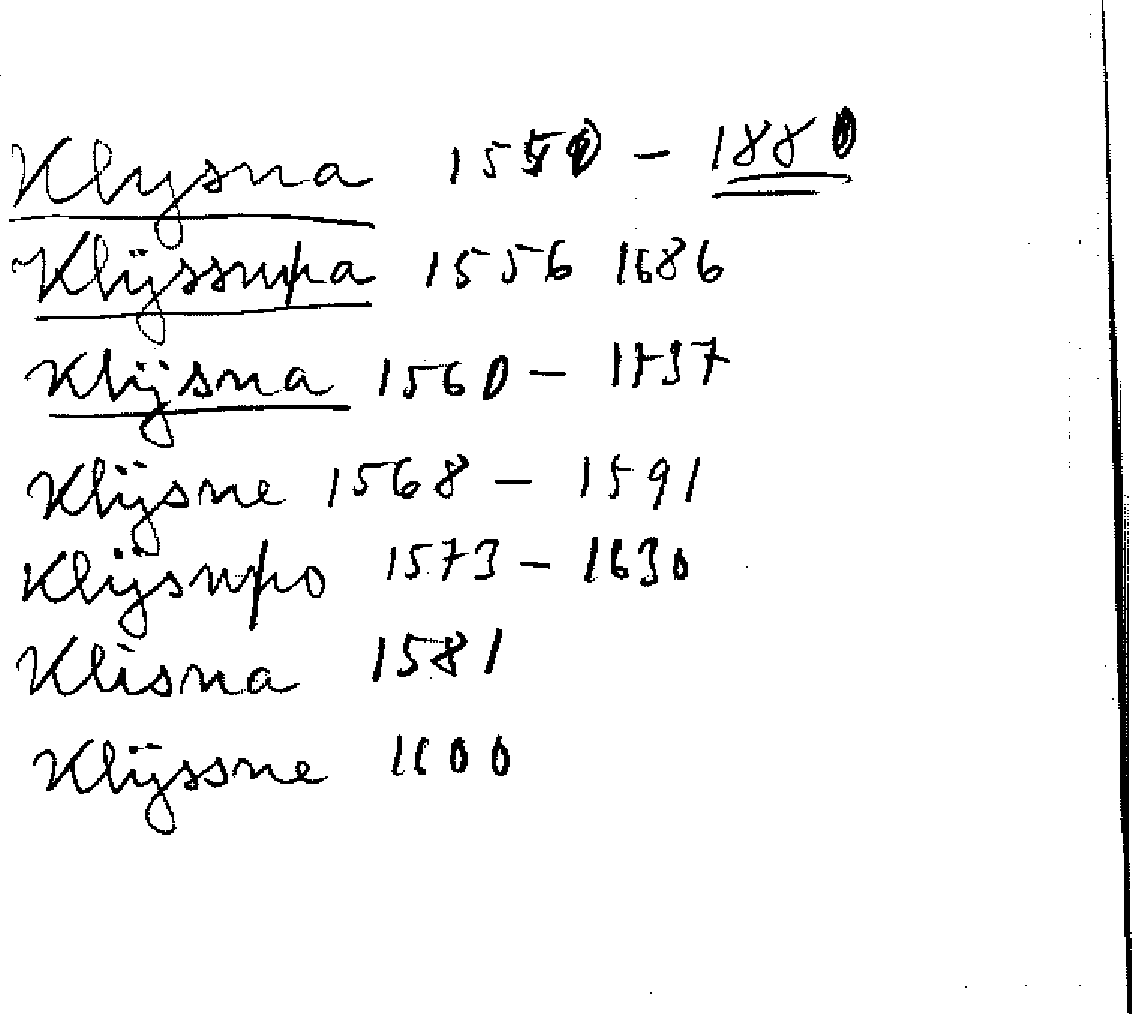 Klysna 1550 – 1880
Klÿssupa 1556 1686
Klÿsna 1560 – 1737
Klÿsne 1568 – 1591
Klÿsupo 1573 – 1630
Klisna 1581
Klÿssne 1600